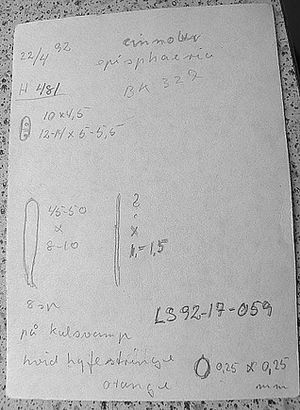 22/4 92
cinnober
episphaeria
H 481
BK 327
10 x 4,5
12-14 x 5-5,5
45-50
x
8-10
?
x
1-1,5
8 sp
LS 92-17-059
på kulsvamp
hvid hyfestrenge
orange
0,25 x 0,25
mm